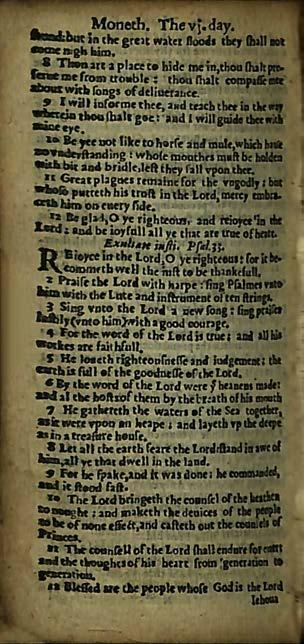 Moneth. The vj. day.
found: but in the great water floods they shall not
come nigh him.
8 Thou art a place to hide me in, thou shalt pre-
serue me from trouble : thou shalt compasse mee
about with songs of deliuerance.
9 I will informe thee, and teach thee in the way
wherein thou shalt goe: and I will guide thee with
mine eye.
10 Be yee not like to horse and mule, which haue
no vnderstanding : whose mouthes must be holden
with bit and bridle, left they fall vpon thee.
11 Great plagues remaine for the vngodly : but
whoso putteth his trust in the Lord, mercy embra-
ceth him on euery side.
12 Be glad, O ye righteous, and reioyce in the
Lord : and be ioyfull all ye that are true of heart.
Exultate iusti. Psal. 33.
REioyce in the Lord, O ye righteous: for it be-
commeth well the iust to be thankfull.
2 Praise the Lord with harpe : sing Psalmes vnto
him with the Lute and instrument of ten strings.
3 Sing vnto the Lord a new song : sing praises
lustily (vnto him) with a good courage.
4 For the word of the Lord is true : and all his
workes are faithfull.
5 He loueth righteousnesse and iudgement: the
earth is full of the goodnesse of the Lord.
6 By the word of the Lord were yͤ heauens made:
and al the hosts of them by the breath of his mouth
7 He gathereth the waters of the Sea together,
as it were vpon an heape : and layeth vp the deepe
as in a treasure house.
8 Let all the earth feare the Lord: stand in awe of
him, all ye that dwell in the land.
9 For he spake, and it was done: he commanded,
and it stood fast.
10 The Lord bringeth the counsel of the heathen
to nought : and maketh the deuices of the people
to be of none effect, and casteth out the counsels of
Princes.
11 The counsell of the Lord shall endure for euer:
and the thoughts of his heart from generation to
generation.
12 Blessed are the people whose God is the Lord
Iehoua